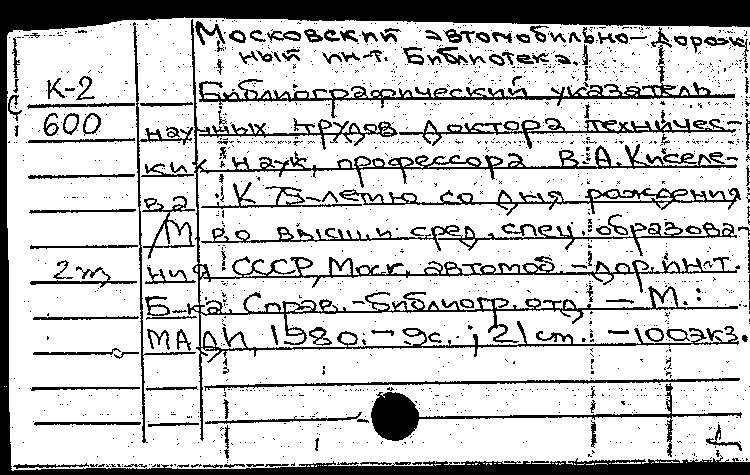 Московский автомобильно-дорож
ный ин-т. Библиотека.
К-2 Библиографический указатель
600 научных трудов доктора техничес-
ких наук, профессора В.А. Киселе-
ва К 75-летию со дня рождения
/М-во высш. и сред. спец. образова-
2 т, ния СССР, Моск. автомоб.-дор. ин-т.
Б-ка. Справ.-библиогр. отд. — М.:
МАДИ, 1980. — 9с.; 21 cm. — 100экз.